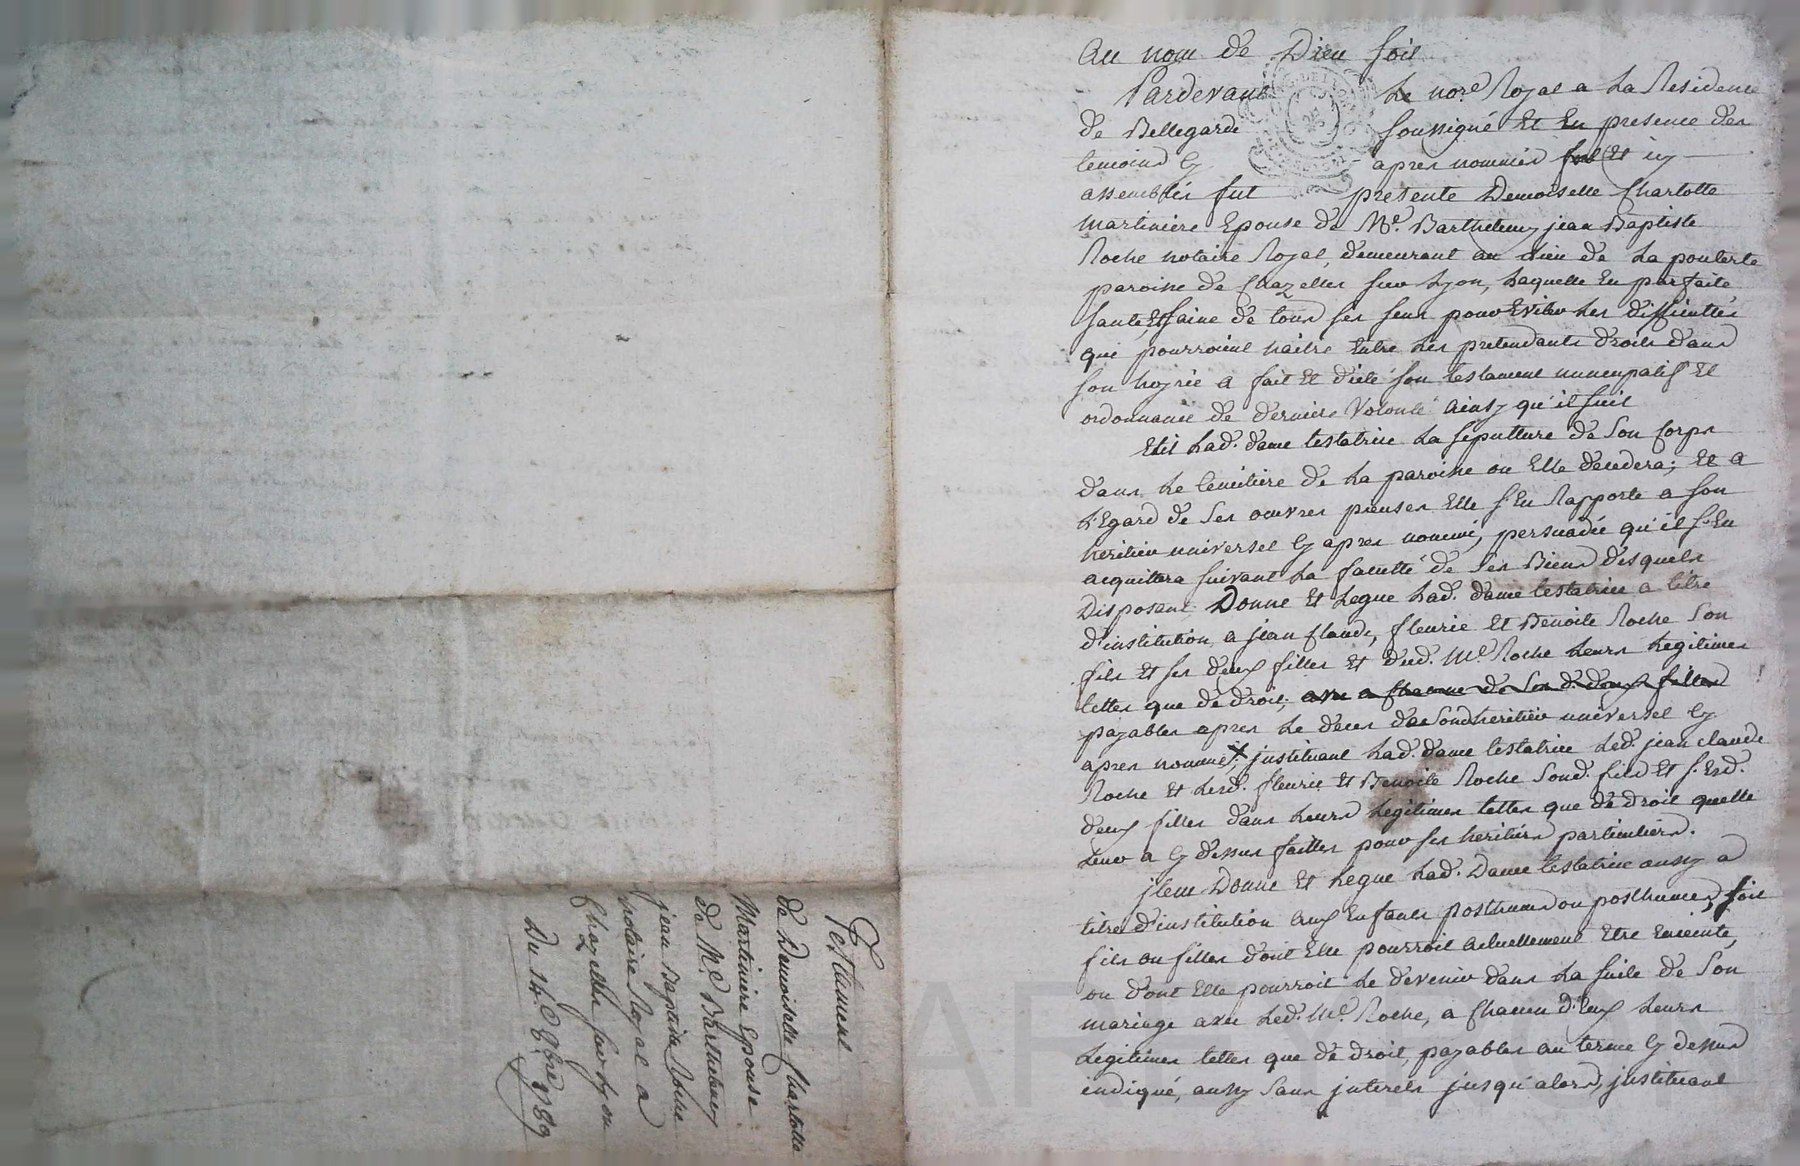 Au nom de Dieu soit
Pardevant Le nore. Royal a La Residence
de Bellegarde soussigné Et En presence des
temoins Cy apres nommés Et icy
assemblés fut presente Demoiselle Charlotte
martiniere Epouse de Me. Barthelemy jean Baptiste
Roche notaire Royal, demeurant au Lieu de La
paroisse de Chazelles sur Lyon, Laquelle En parfaite
santé, Et saine de tous ses sens pour Eviter Les difficultés
qui pourroient naitre Entre Les pretendants droits dans
son hoirie a fait Et dicté son testament nuncupatif Et
ordonnance de derniere Volonté ainsy qu'il suit
Elit Lad. dame testatrice La sepulture de Son Corps
dans Le Cimitiere de La paroisse ou Elle decedera; Et a
L'Egard de Ses œuvres pieuses Elle s'En Rapporte a son
heritier universel Cy apres nommé, persuadée qu'il s'En
acquittera suivant La faculté de Ses Biens desquels
Disposant Donne Et Legue Lad. dame testatrice a titre
d'institution a jean Claude, fleurie Et Benoite Roche Son
fils Et ses deux filles Et dud. Me. Roche Leurs Legitimes
telles que de droit, a Chacune de Ses d. deux filles
payables apres Le deces de Sond heritier universel Cy
apres nommé, x justituant Lad. dame testatrice Led. jean Claude
Roche Et Lesd. fleurie Et Benoite Roche Sond. fils Et Sesd.
deux filles dans Leurs Legitimes telles que de droit quelle
Leur a Cy dessus faittes pour ses heritiers particuliers.
jtem Donne Et Legue Lad. Dame testatrice aussy a
titre d'institution aux Enfants posthumes ou posthumes, soit
fils ou filles dont Elle pourroit actuellement Etre Enceinte,
ou dont Elle pourroit Le devenir dans La suite de Son
mariage avec Led. Me. Roche, a Chacun d'Eux Leurs
Legitimes telles que de droit, payables au terme Cy dessus
indiqué, aussy Sans jnterets jusqu'alors, justituant
Testament
de Demoiselle Charlotte
Martiniere Epouse
de Me. Barthelemy
jean Baptiste Roche
notaire Royal a
Chazelles sur Lyon
Du 14e. 9bre 1789